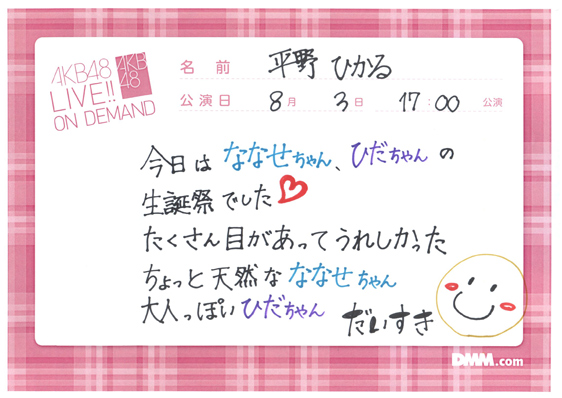 AKB48
LIVE!!
ON DEMAND
AKB
48
名前 平野 ひかる
公演日 8月 3日 17:00 公演
今日は ななせちゃん、ひだちゃん の
生誕祭でした
たくさん目があってうれしかった
ちょっと天然な ななせちゃん
大人っぽい ひだちゃん だいすき
DMM.com